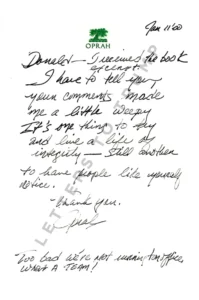 Jan 11 '00
OPRAH
Donald— I received the book
excerpt.
I have to tell you
your comments made
me a little weepy
It's one thing to try
and live a life of
integrity— Still another
to have people like yourself
notice.
- Thank you.
Oprah
Too bad we're not running for office,
WHAT A TEAM!
LETTERS TO TRUMP